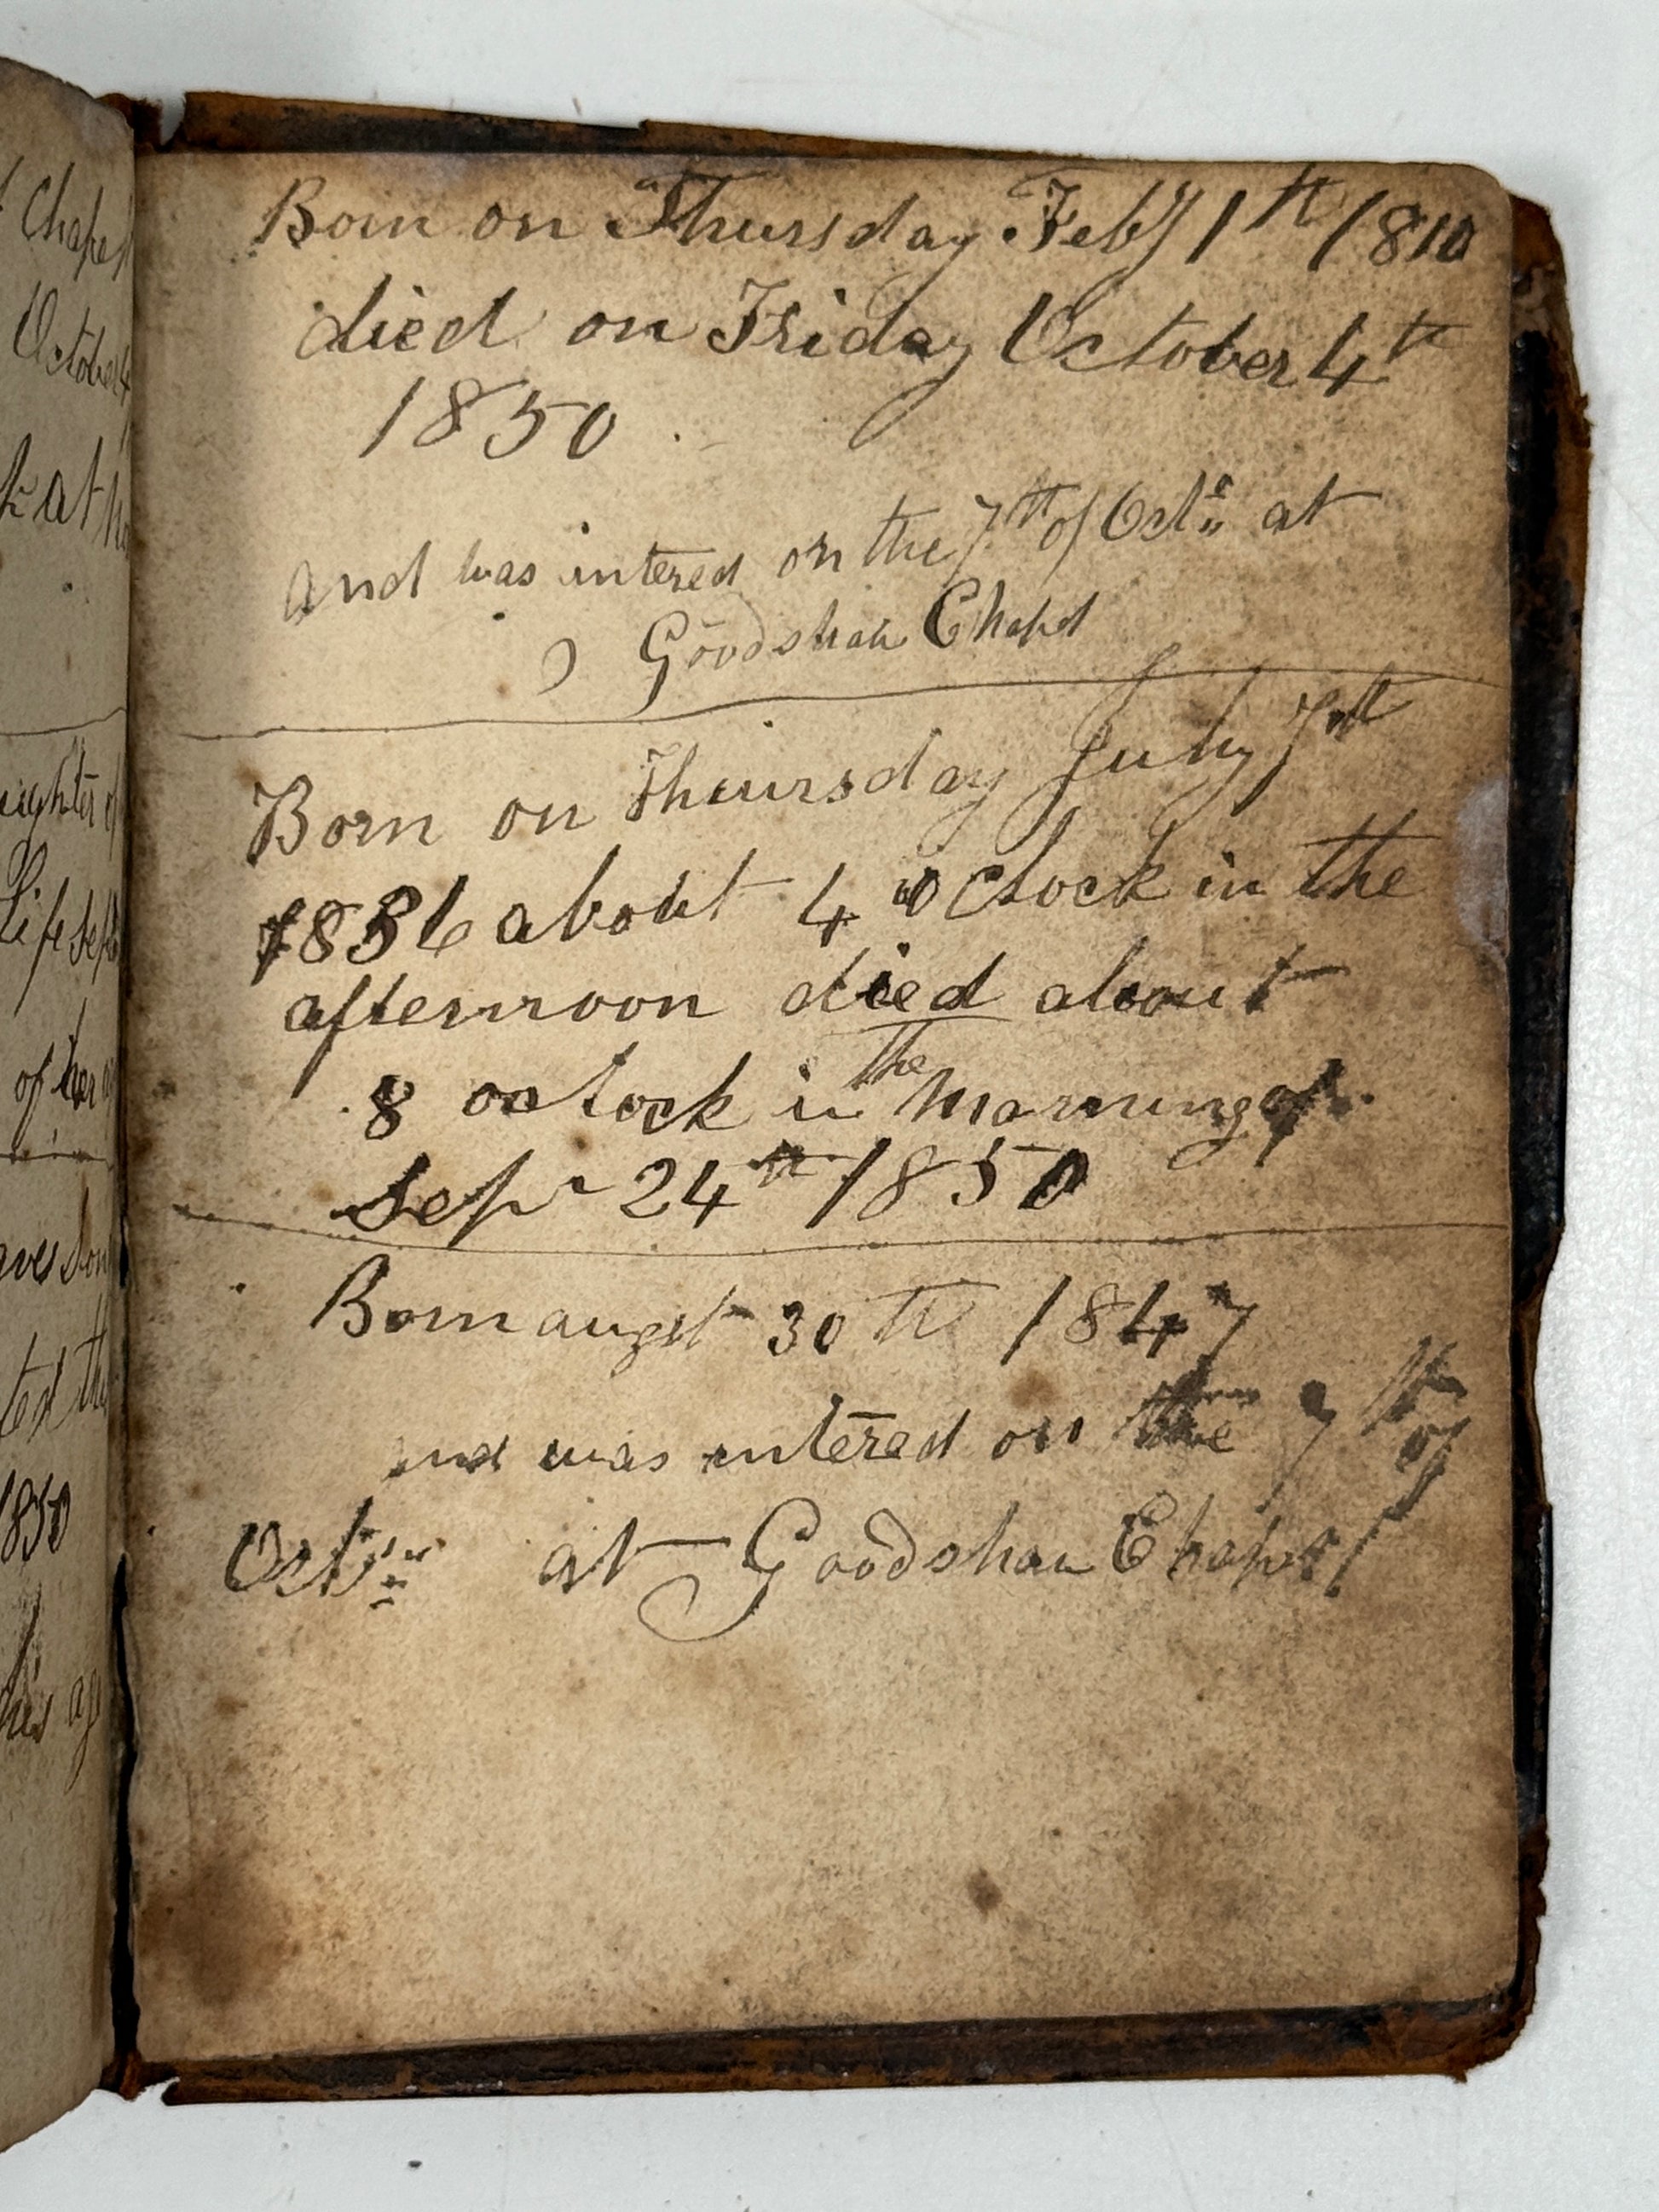 Chapel
October 4
at
ughter of
Life sep
of her a
ves Son
ted the
1850
his ag
Born on Thursday Feby 1th 1810
died on Friday October 4th
1850
and was intered on the 7th of Octr at
Goodshaw Chapel
Born on Thursday July 7th
1836 about 4 o Clock in the
afternoon died about
8 oclock in the morning of
Sepr 24th 1850
Born augst 30th 1847
and was intered on the 7th of
Octr at Goodshaw Chapel